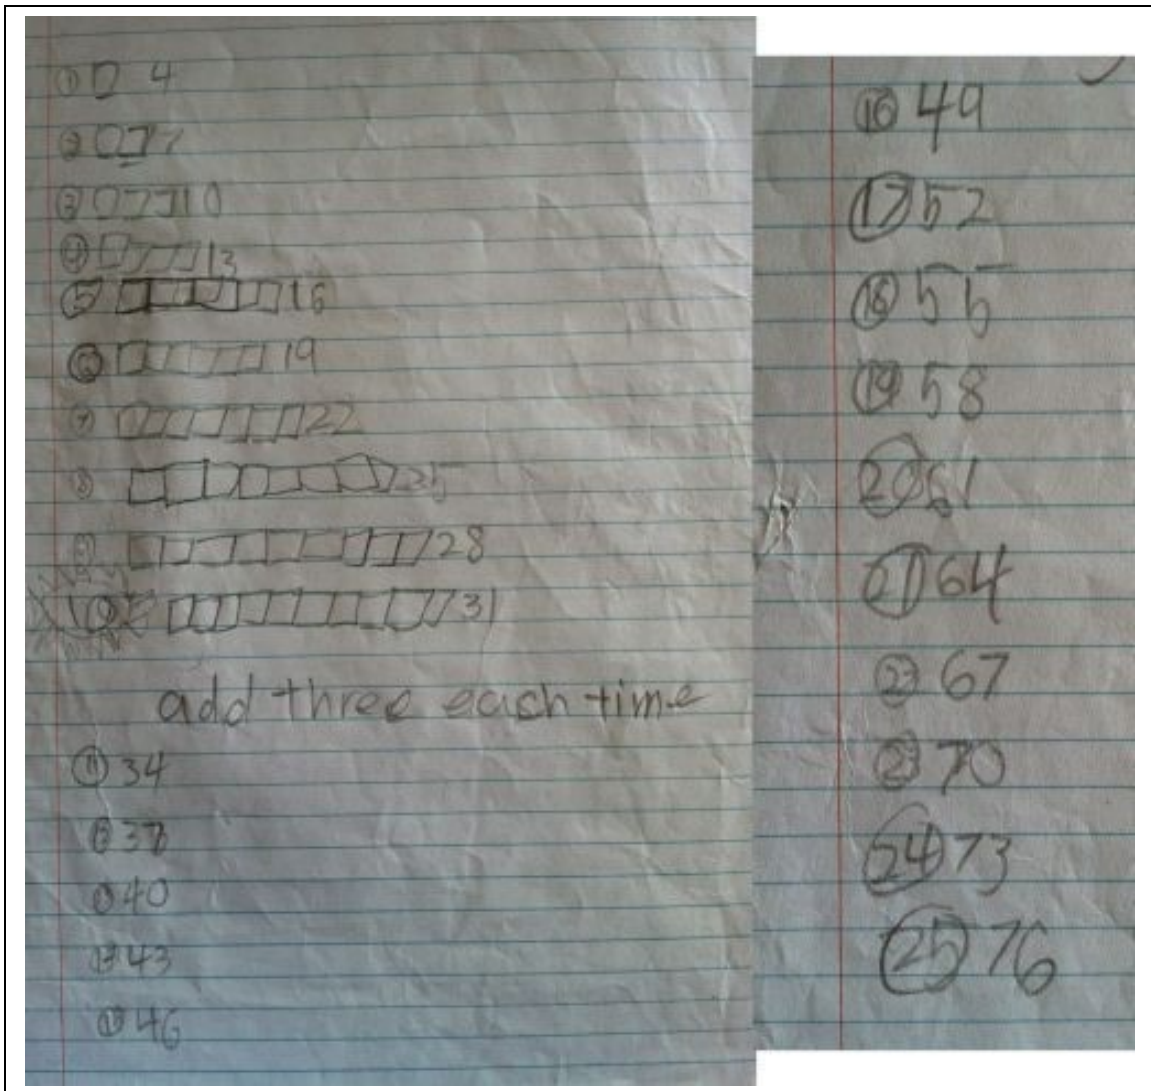 ① 4
② 7
③ 10
④ 13
⑤ 16
⑥ 19
⑦ 22
⑧ 25
⑨ 28
⑩ 31
add three each time
⑪ 34
⑫ 37
⑬ 40
⑭ 43
⑮ 46
⑯ 49
⑰ 52
⑱ 55
⑲ 58
⑳ 61
㉑ 64
㉒ 67
㉓ 70
㉔ 73
㉕ 76